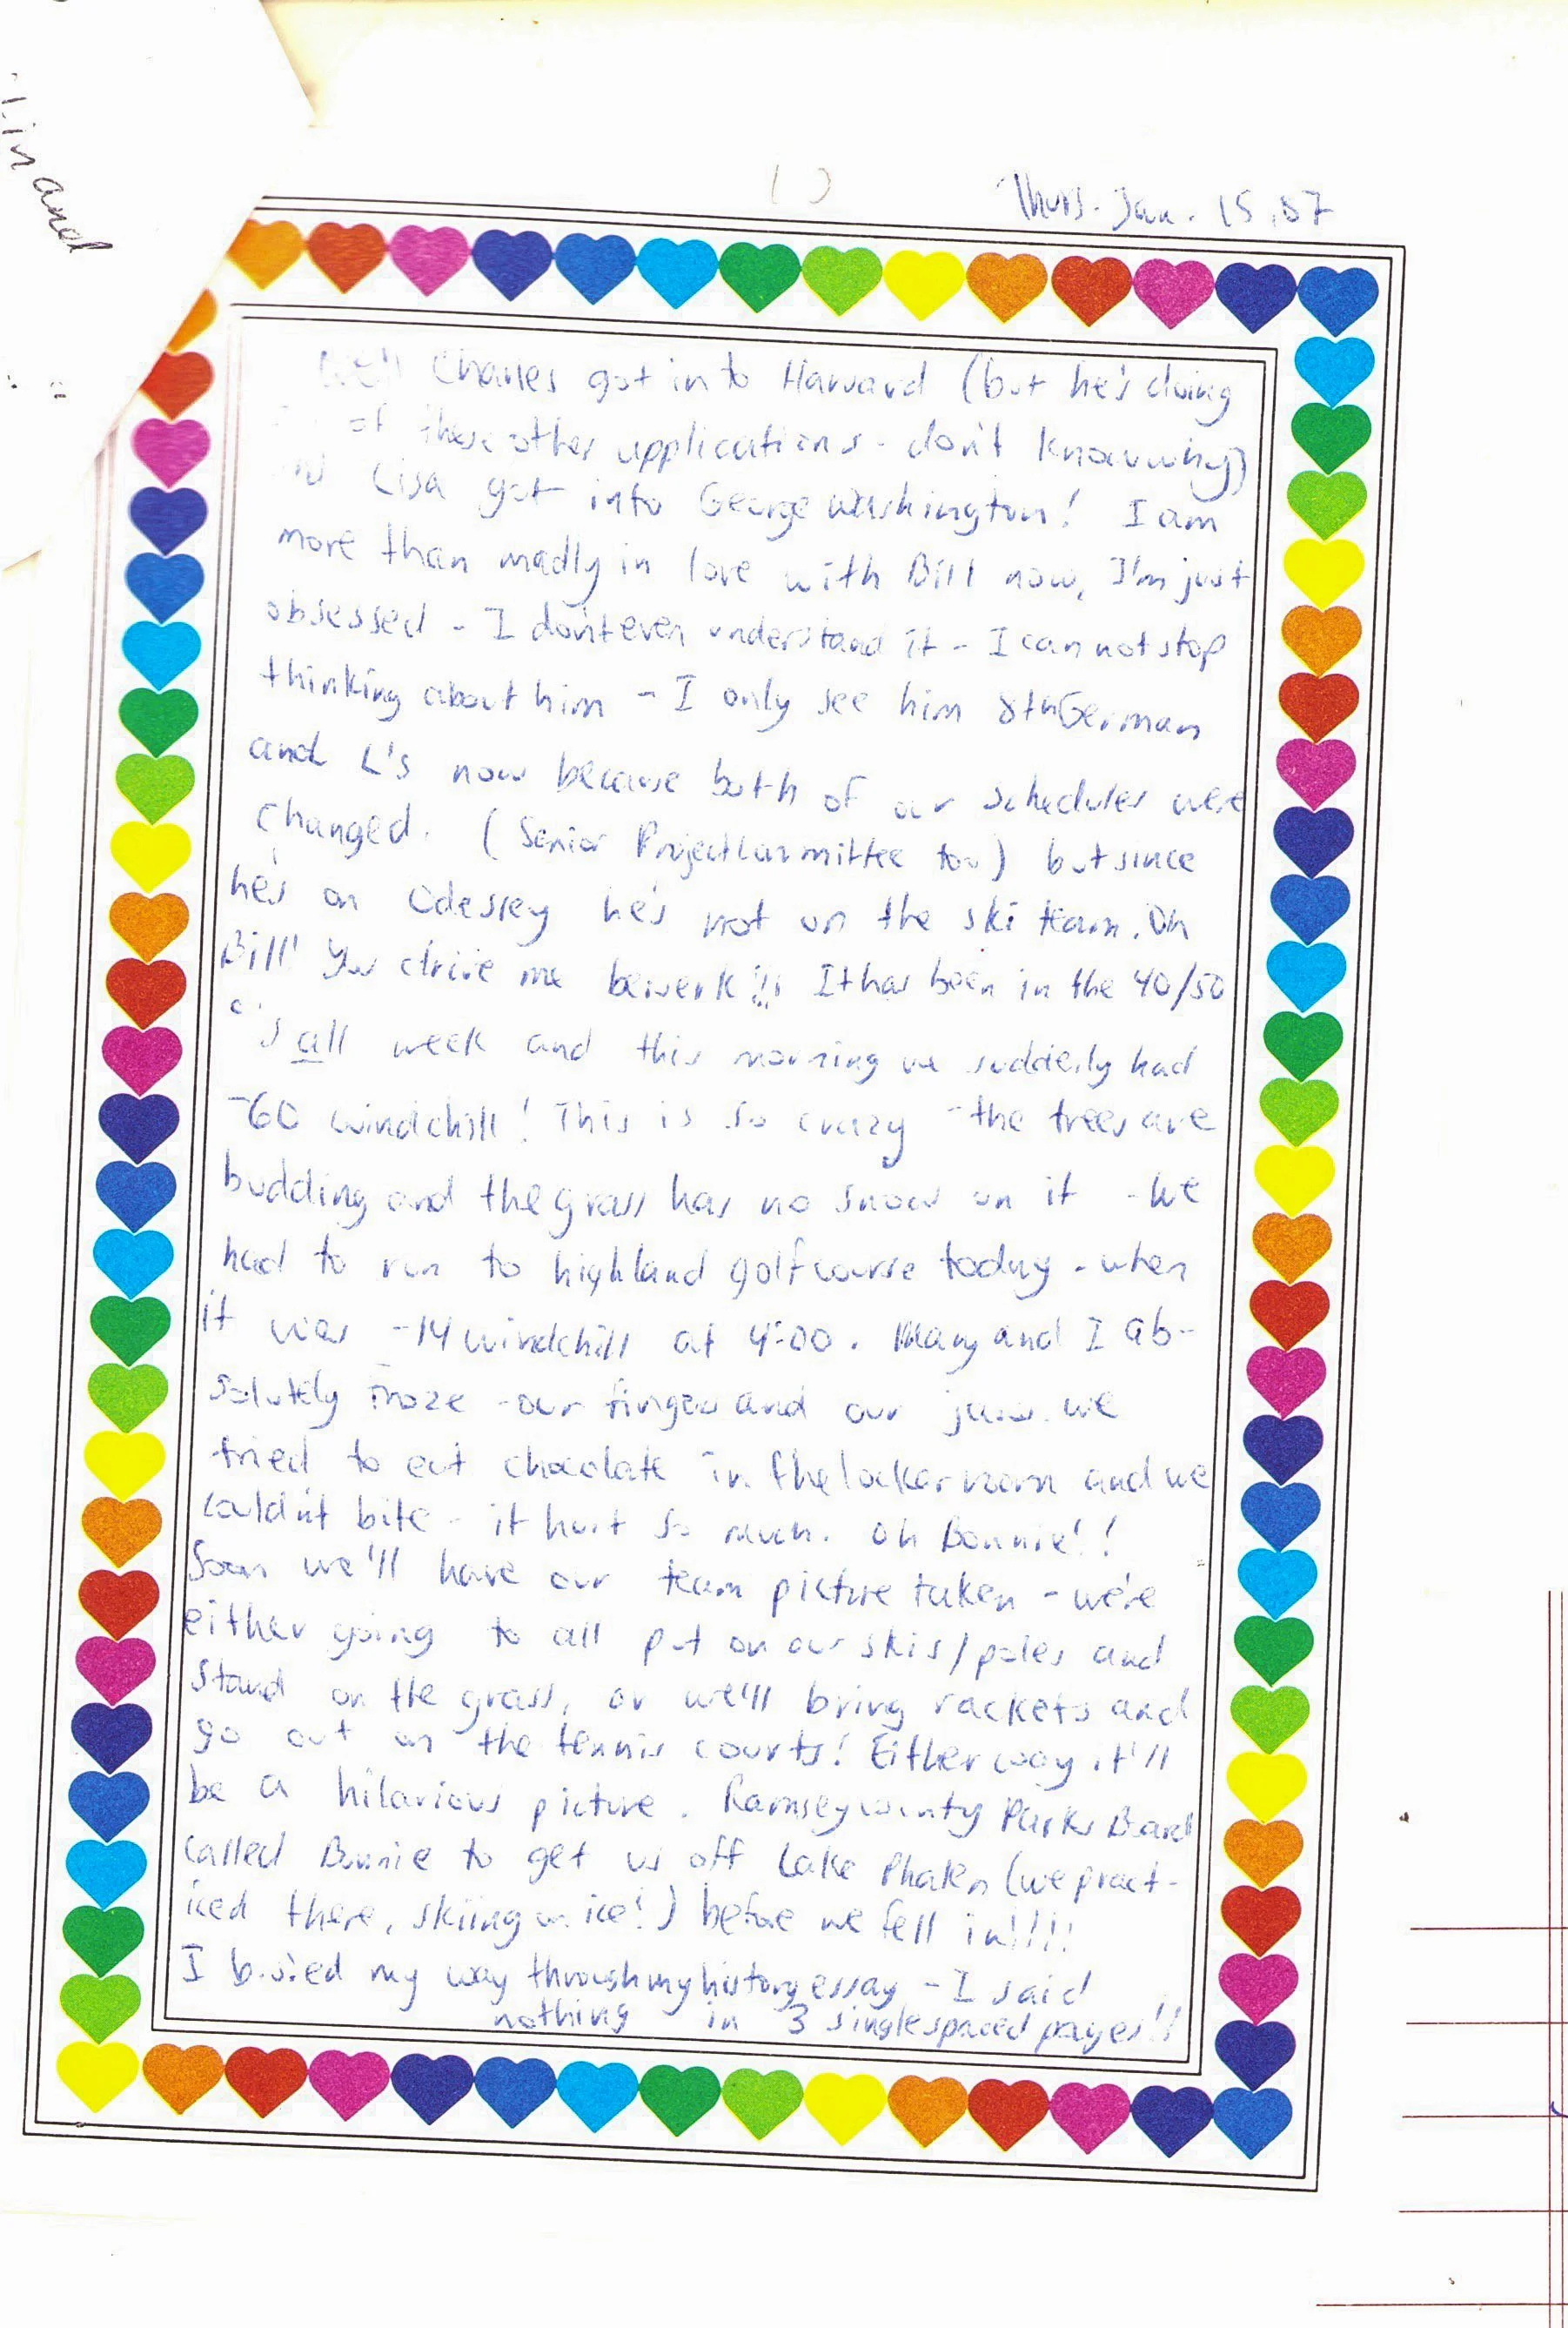 lin and
Thurs. Jan. 15, 87
Well Charles got in to Harvard (but he's doing
of these other applications - don't know why)
Lisa got into George Washington! I am
more than madly in love with Bill now, I'm just
obsessed - I don't even understand it - I can not stop
thinking about him - I only see him 8th German
and L's now because both of our schedules were
changed. (Senior Project Committee too) but since
he's on Odessey he's not on the ski team. Oh
Bill! You drive me beserk!!! It has been in the 40/50
°'s all week and this morning we suddenly had
-60 windchill! This is so crazy - the trees are
budding and the grass has no snow on it - We
had to run to highland golf course today - when
it was -14 windchill at 4:00. Mary and I ab-
solutely froze - our fingers and our jaws. we
tried to eat chocolate in the locker room and we
couldn't bite - it hurt so much. Oh Bonnie!!
Soon we'll have our team picture taken - we're
either going to all put on our skis/poles and
stand on the grass, or we'll bring rackets and
go out on the tennis courts! Either way it'll
be a hilarious picture. Ramsey County Parks Board
called Bonnie to get us off Lake Phalen (we pract-
iced there, skiing on ice!) before we fell in!!!!
I b.s.ed my way through my history essay - I said
nothing in 3 single spaced pages!!